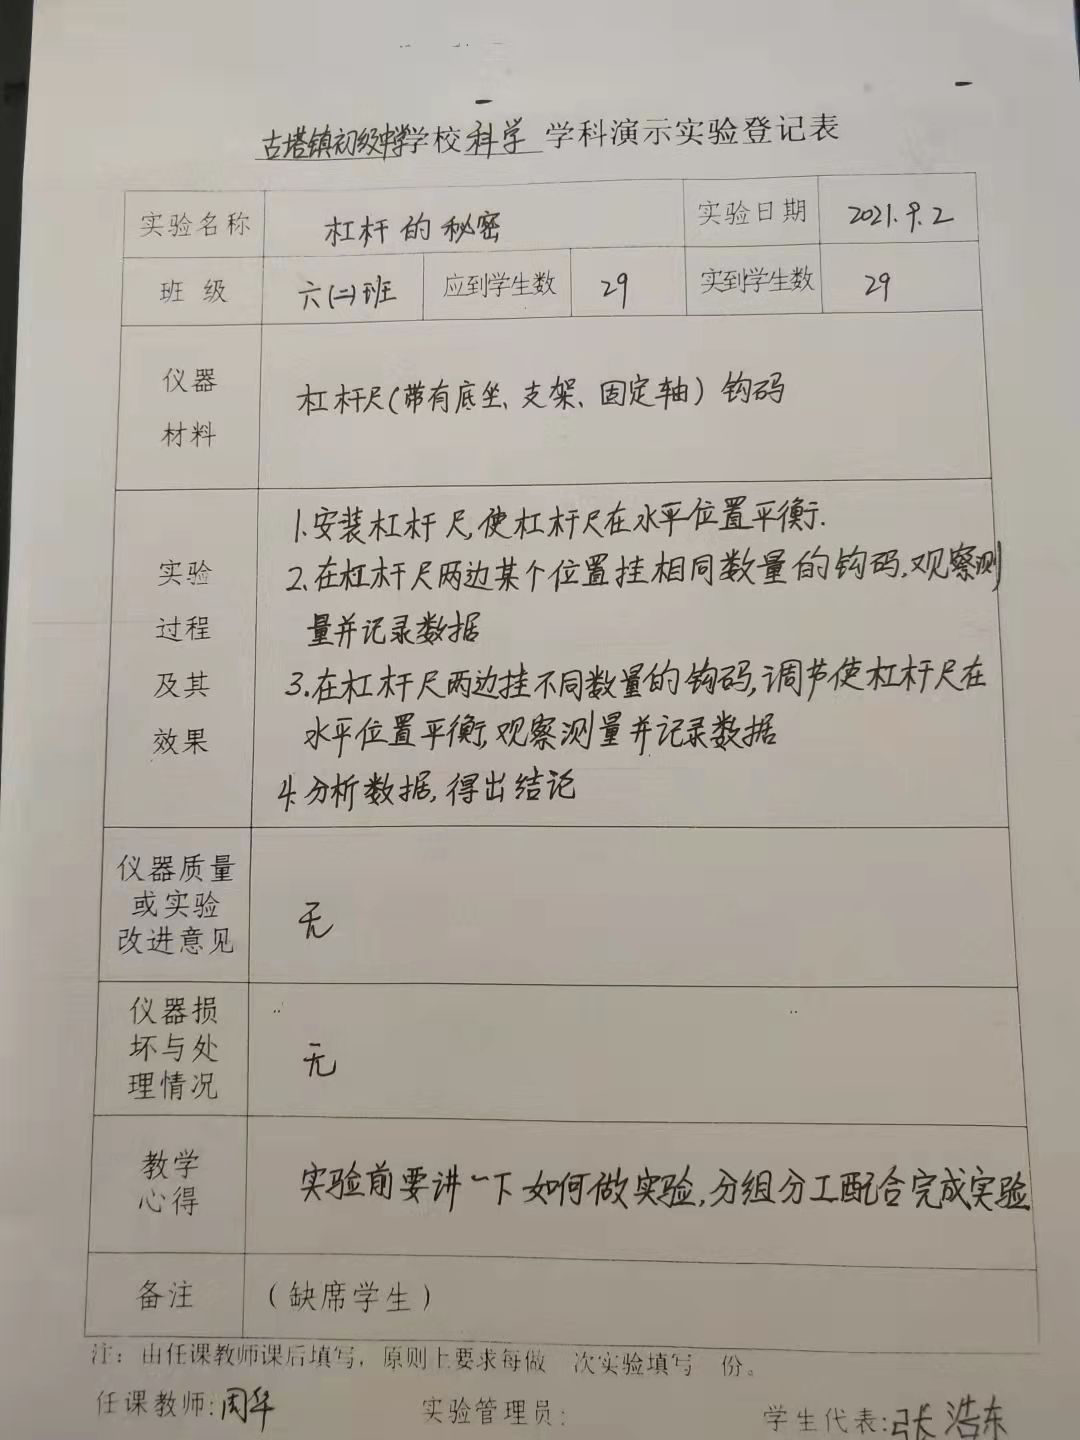 古塔镇初级中学学校科学 学科演示实验登记表
实验名称 杠杆的秘密 实验日期 2021.9.2
班 级 六(二)班 应到学生数 29 实到学生数 29
仪器
材料
杠杆尺(带有底坐、支架、固定轴) 钩码
实验
过程
及其
效果
1.安装杠杆尺,使杠杆尺在水平位置平衡.
2.在杠杆尺两边某个位置挂相同数量的钩码,观察测
量并记录数据
3.在杠杆尺两边挂不同数量的钩码,调节使杠杆尺在
水平位置平衡,观察测量并记录数据
4.分析数据,得出结论
仪器质量
或实验
改进意见
无
仪器损
坏与处
理情况
无
教学
心得
实验前要讲一下如何做实验,分组分工配合完成实验
备注 (缺席学生)
注: 由任课教师课后填写, 原则上要求每做 次实验填写 份。
任课教师:周华 实验管理员: 学生代表:张浩东